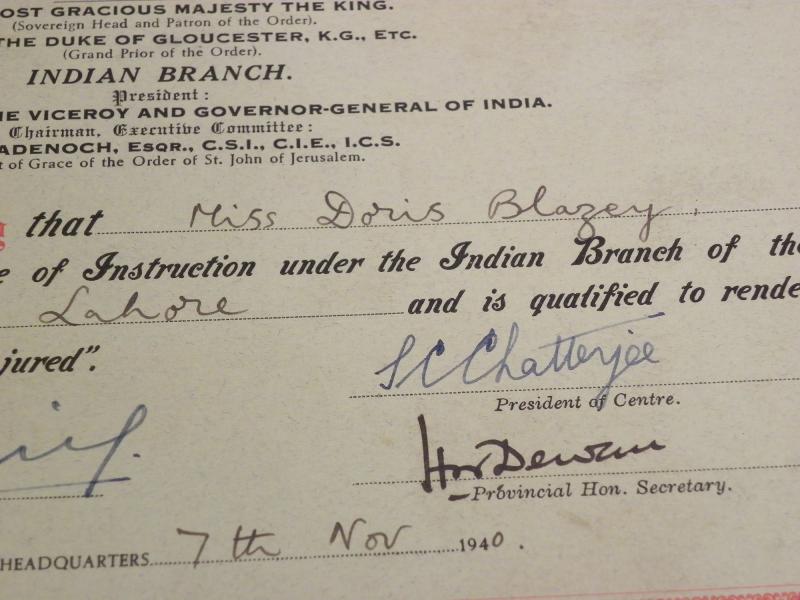 OST GRACIOUS MAJESTY THE KING.
(Sovereign Head and Patron of the Order).
THE DUKE OF GLOUCESTER, K.G., ETC.
(Grand Prior of the Order).
INDIAN BRANCH.
President:
E VICEROY AND GOVERNOR-GENERAL OF INDIA.
Chairman, Executive Committee:
ADENOCH, ESQR., C.S.I., C.I.E., I.C.S.
t of Grace of the Order of St. John of Jerusalem.
s that Miss Doris Blazey.
e of Instruction under the Indian Branch of the
Lahore and is qualified to rende
jured".
S C Chatterjee
President of Centre.
Dewan
Provincial Hon. Secretary.
HEADQUARTERS 7th Nov 1940.